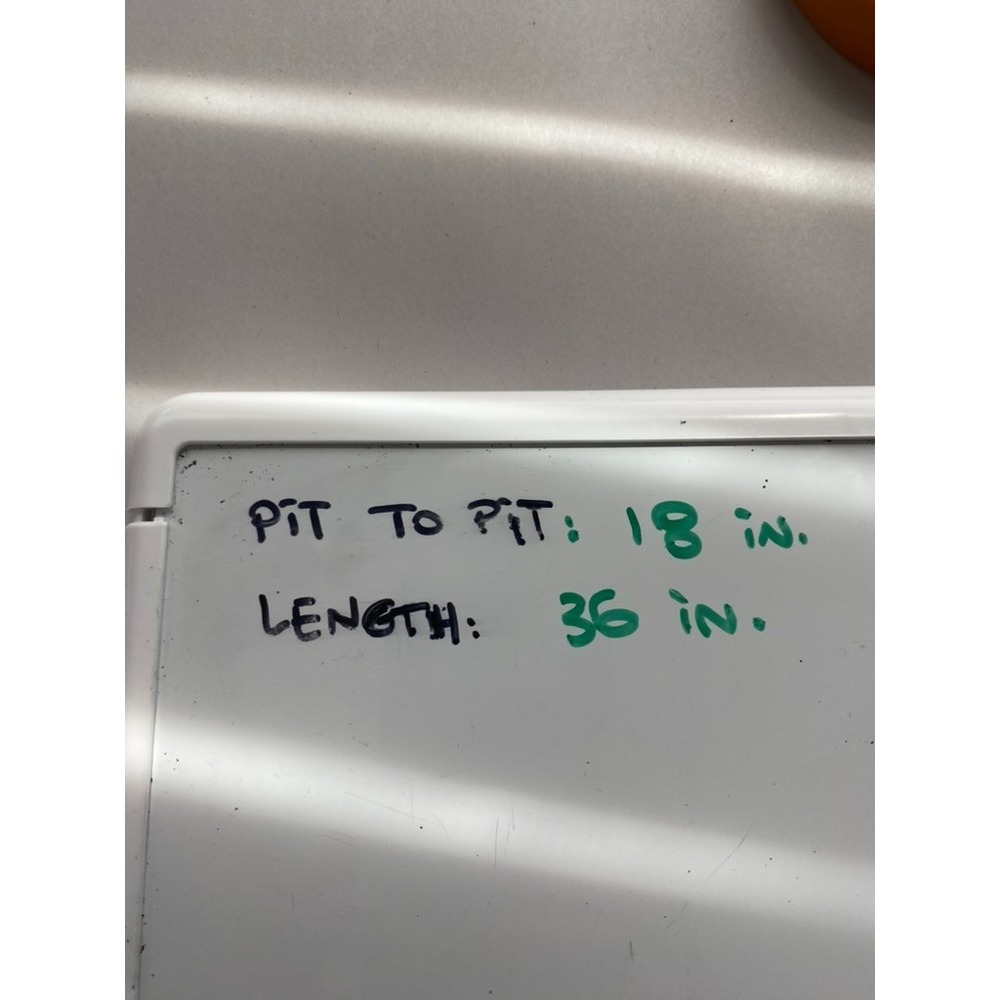 PiT TO PiT: 18 iN.
LENGTH: 36 iN.